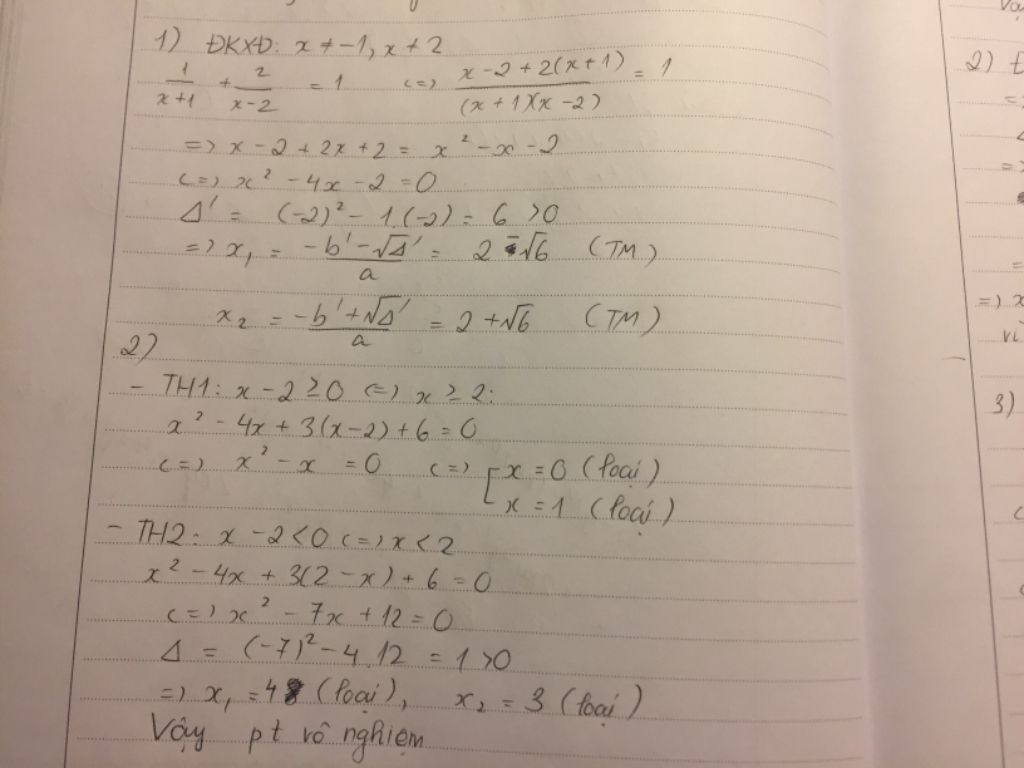 1) ĐKXĐ: x ≠ -1, x ≠ 2
1/(x+1) + 2/(x-2) = 1 <=> (x-2+2(x+1))/((x+1)(x-2)) = 1
=> x-2+2x+2 = x² -x -2
<=> x² -4x -2 = 0
Δ' = (-2)² - 1.(-2) = 6 >0
=> x₁ = (-b' -√Δ')/a = 2 -√6 (TM)
x₂ = (-b' +√Δ')/a = 2 +√6 (TM)
2)
- TH1: x-2 ≥ 0 <=> x ≥ 2:
x² - 4x + 3(x-2) + 6 = 0
<=> x² - x = 0 <=> [ x = 0 (loại)
x = 1 (loại)
- TH2: x -2 < 0 <=> x < 2
x² - 4x + 3(2-x) + 6 = 0
<=> x² - 7x + 12 = 0
Δ = (-7)² - 4.12 = 1 >0
=> x₁ = 4 (loại), x₂ = 3 (loại)
Vậy pt vô nghiệm
2) Đ
=> x
vì
3)